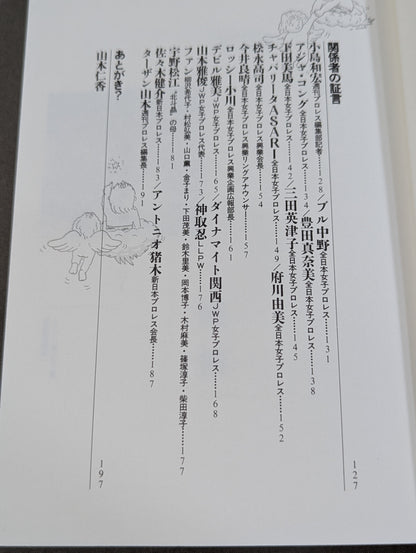 関係者の証言 127
小島和宏 週刊プロレス編集部記者……128／ブル中野 全日本女子プロレス……131
アジャ・コング 全日本女子プロレス……134／豊田真奈美 全日本女子プロレス……138
下田美馬 全日本女子プロレス……142／三田英津子 全日本女子プロレス……145
チャパリータASARI 全日本女子プロレス……149／府川由美 全日本女子プロレス……152
松永高司 全日本女子プロレス興業会長……154
今井良晴 全日本女子プロレス興業リングアナウンサー……157
ロッシー小川 全日本女子プロレス興業企画広報部長……161
デビル雅美 JWP女子プロレス……165／ダイナマイト関西 JWP女子プロレス……168
山本雅俊 JWP女子プロレス代表……173／神取忍 LLPW……176
ファン 柳沢希代子・村松弘美・山口薫・金子まり・下田茂美・鈴木里美・岡本博子・木村麻美・篠塚淳子・柴田淳子……177
宇野松江 "北斗晶"の母……181
佐々木健介 新日本プロレス……183／アントニオ猪木 新日本プロレス会長……187
ターザン山本 週刊プロレス編集長……191
あとがき？ 197
山本仁香